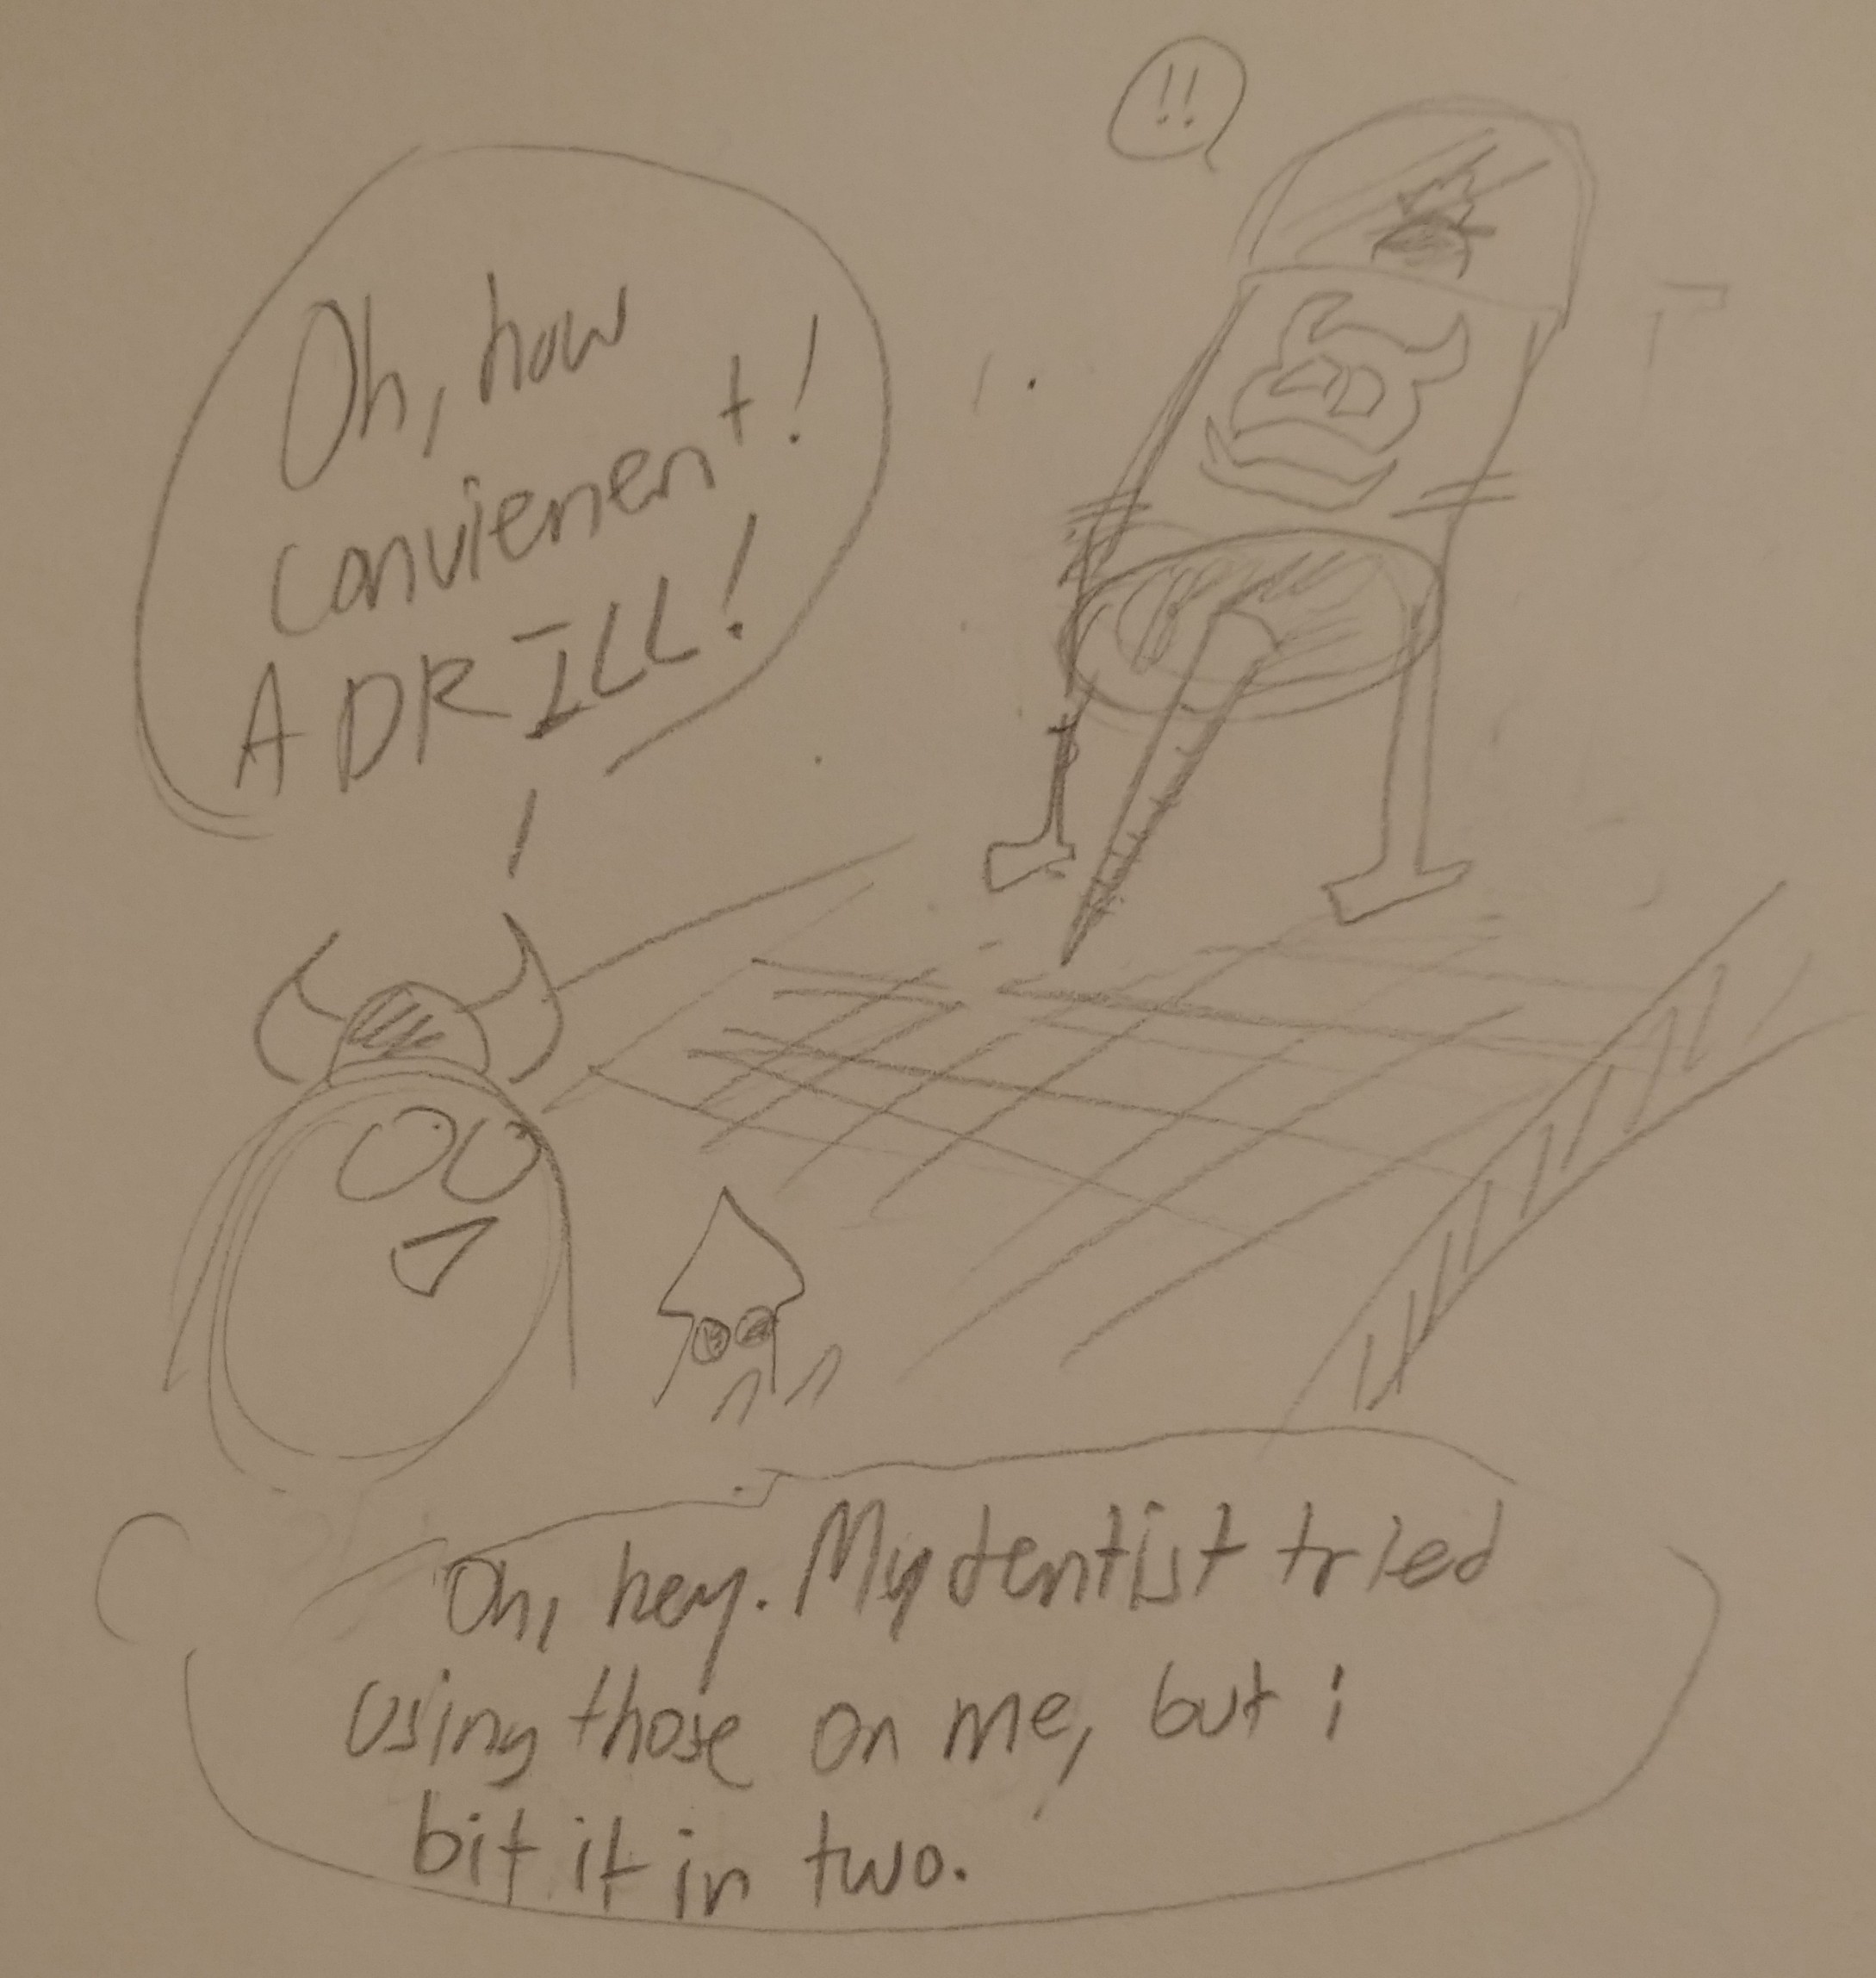 !!
Oh, how
convienent!
A DRILL!
Oh, hey. My dentist tried
using those on me, but i
bit it in two.